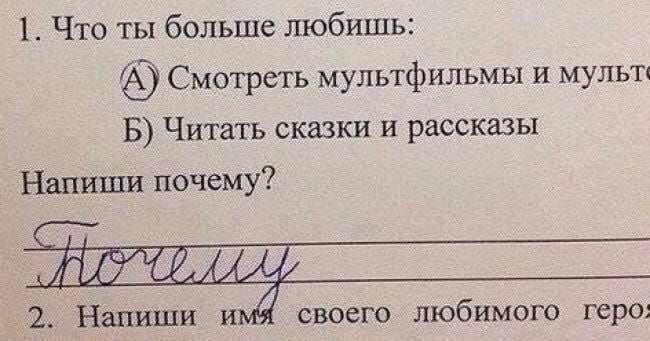 1. Что ты больше любишь:
А) Смотреть мультфильмы и
Б) Читать сказки и рассказы
Напиши почему?
Почему
2. Напиши имя своего любимого